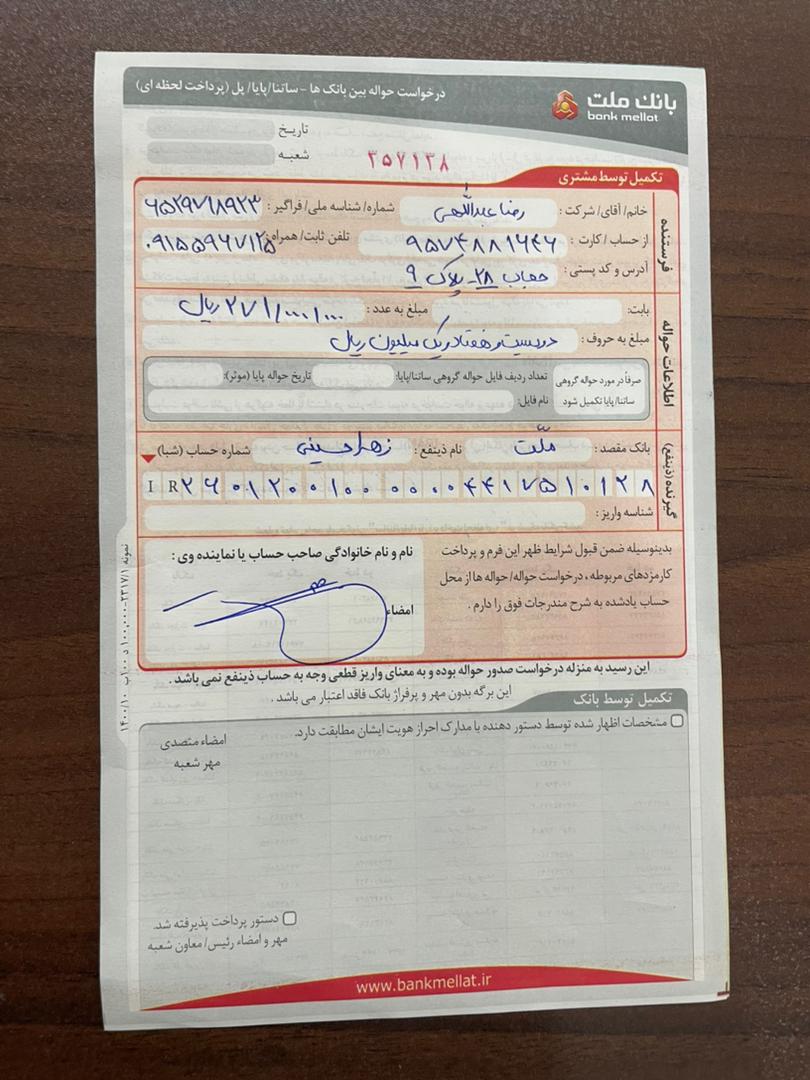 بانک ملت
bank mellat
درخواست حواله بین بانک ها - ساتنا/پایا/پل (پرداخت لحظه ای)
تاریخ
شعبه
۳۵۷۱۳۸
تکمیل توسط مشتری
فرستنده
خانم/آقای/شرکت : رضا عبداللهی شماره/شناسه ملی/فراگیر : ۶۵۲۹۷۱۸۹۲۳
از حساب/کارت : ۹۵۷۴۸۸۱۶۴۶ تلفن ثابت/همراه : ۰۹۱۵۵۹۶۷۱۲۵
آدرس و کد پستی : حجاب ۲۸- پلاک ۹
اطلاعات حواله
بابت: مبلغ به عدد : ۲۷۱/۰۰۰/۰۰۰ ریال
مبلغ به حروف : دویست و هفتاد و یک میلیون ریال
صرفاً در مورد حواله گروهی ساتنا/پایا تکمیل شود
تعداد ردیف فایل حواله گروهی ساتنا/پایا: تاریخ حواله پایا (موثر):
نام فایل:
گیرنده (ذینفع)
بانک مقصد : ملّت نام ذینفع : زهرا حسینی شماره حساب (شبا)
IR۲۶۰۱۲۰۰۱۰۰۰۰۰۰۴۴۱۷۵۱۰۱۲۸
شناسه واریز :
بدینوسیله ضمن قبول شرایط ظهر این فرم و پرداخت
کارمزدهای مربوطه ، درخواست حواله/حواله ها از محل
حساب یادشده به شرح مندرجات فوق را دارم .
نام و نام خانوادگی صاحب حساب یا نماینده وی :
امضاء
این رسید به منزله درخواست صدور حواله بوده و به معنای واریز قطعی وجه به حساب ذینفع نمی باشد .
این برگه بدون مهر و پرفراژ بانک فاقد اعتبار می باشد .
تکمیل توسط بانک
مشخصات اظهار شده توسط دستور دهنده با مدارک احراز هویت ایشان مطابقت دارد.
امضاء متصدی
مهر شعبه
دستور پرداخت پذیرفته شد.
مهر و امضاء رئیس/معاون شعبه
www.bankmellat.ir
نمونه ۲۳۱۷/۱-۱۰۰,۰۰۰ د ۱۰۰ب ۱۴۰۰/۱۰